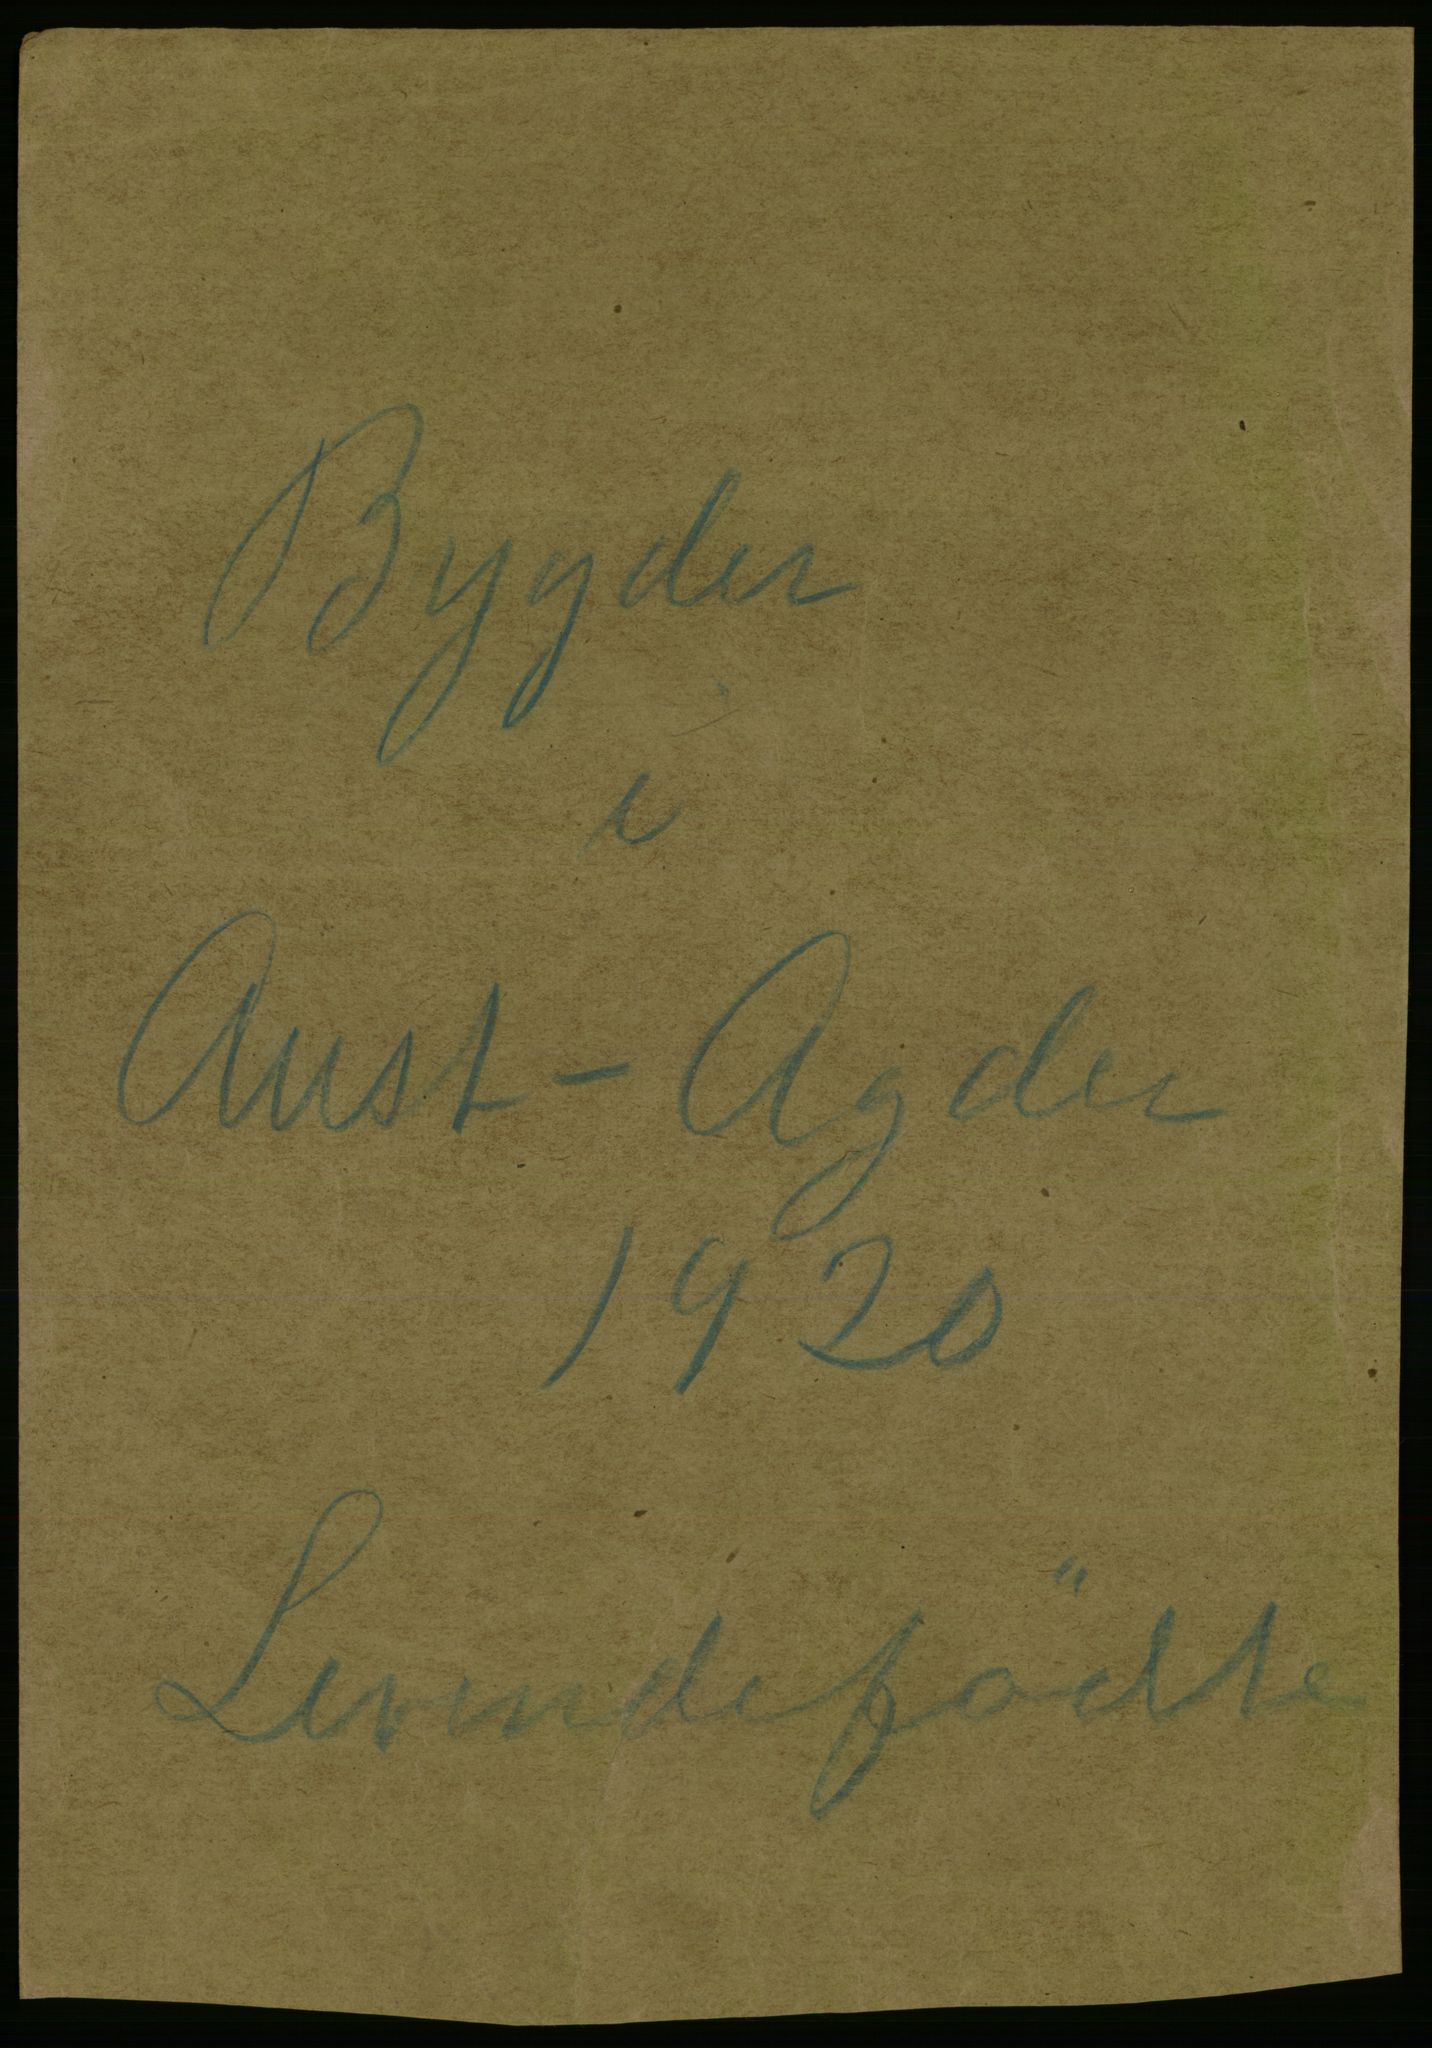 Bygder
i
Aust-Agder
1920
Levendefödte